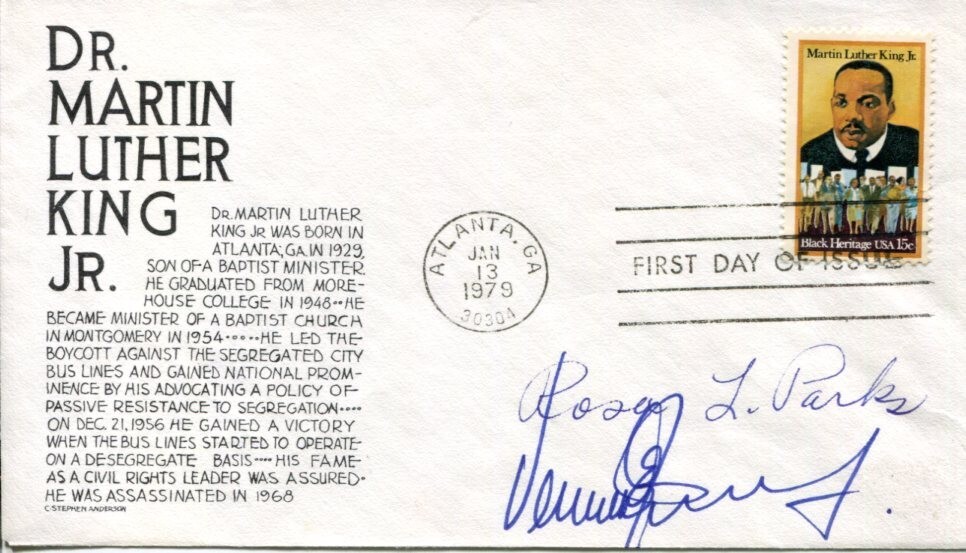 DR.
MARTIN
LUTHER
KING
JR.
DR. MARTIN LUTHER
KING JR WAS BORN IN
ATLANTA, GA. IN 1929,
SON OF A BAPTIST MINISTER.
HE GRADUATED FROM MORE-
HOUSE COLLEGE IN 1948••HE
BECAME MINISTER OF A BAPTIST CHURCH
IN MONTGOMERY IN 1954•••••HE LED THE
BOYCOTT AGAINST THE SEGREGATED CITY
BUS LINES AND GAINED NATIONAL PROM-
INENCE BY HIS ADVOCATING A POLICY OF
PASSIVE RESISTANCE TO SEGREGATION••••
ON DEC. 21, 1956 HE GAINED A VICTORY
WHEN THE BUS LINES STARTED TO OPERATE
ON A DESEGREGATE BASIS••••HIS FAME
AS A CIVIL RIGHTS LEADER WAS ASSURED•
HE WAS ASSASSINATED IN 1968
C. STEPHEN ANDERSON
ATLANTA, GA
JAN
13
1979
30304
Martin Luther King Jr.
Black Heritage USA 15c
FIRST DAY OF ISSUE
Rosa L. Parks